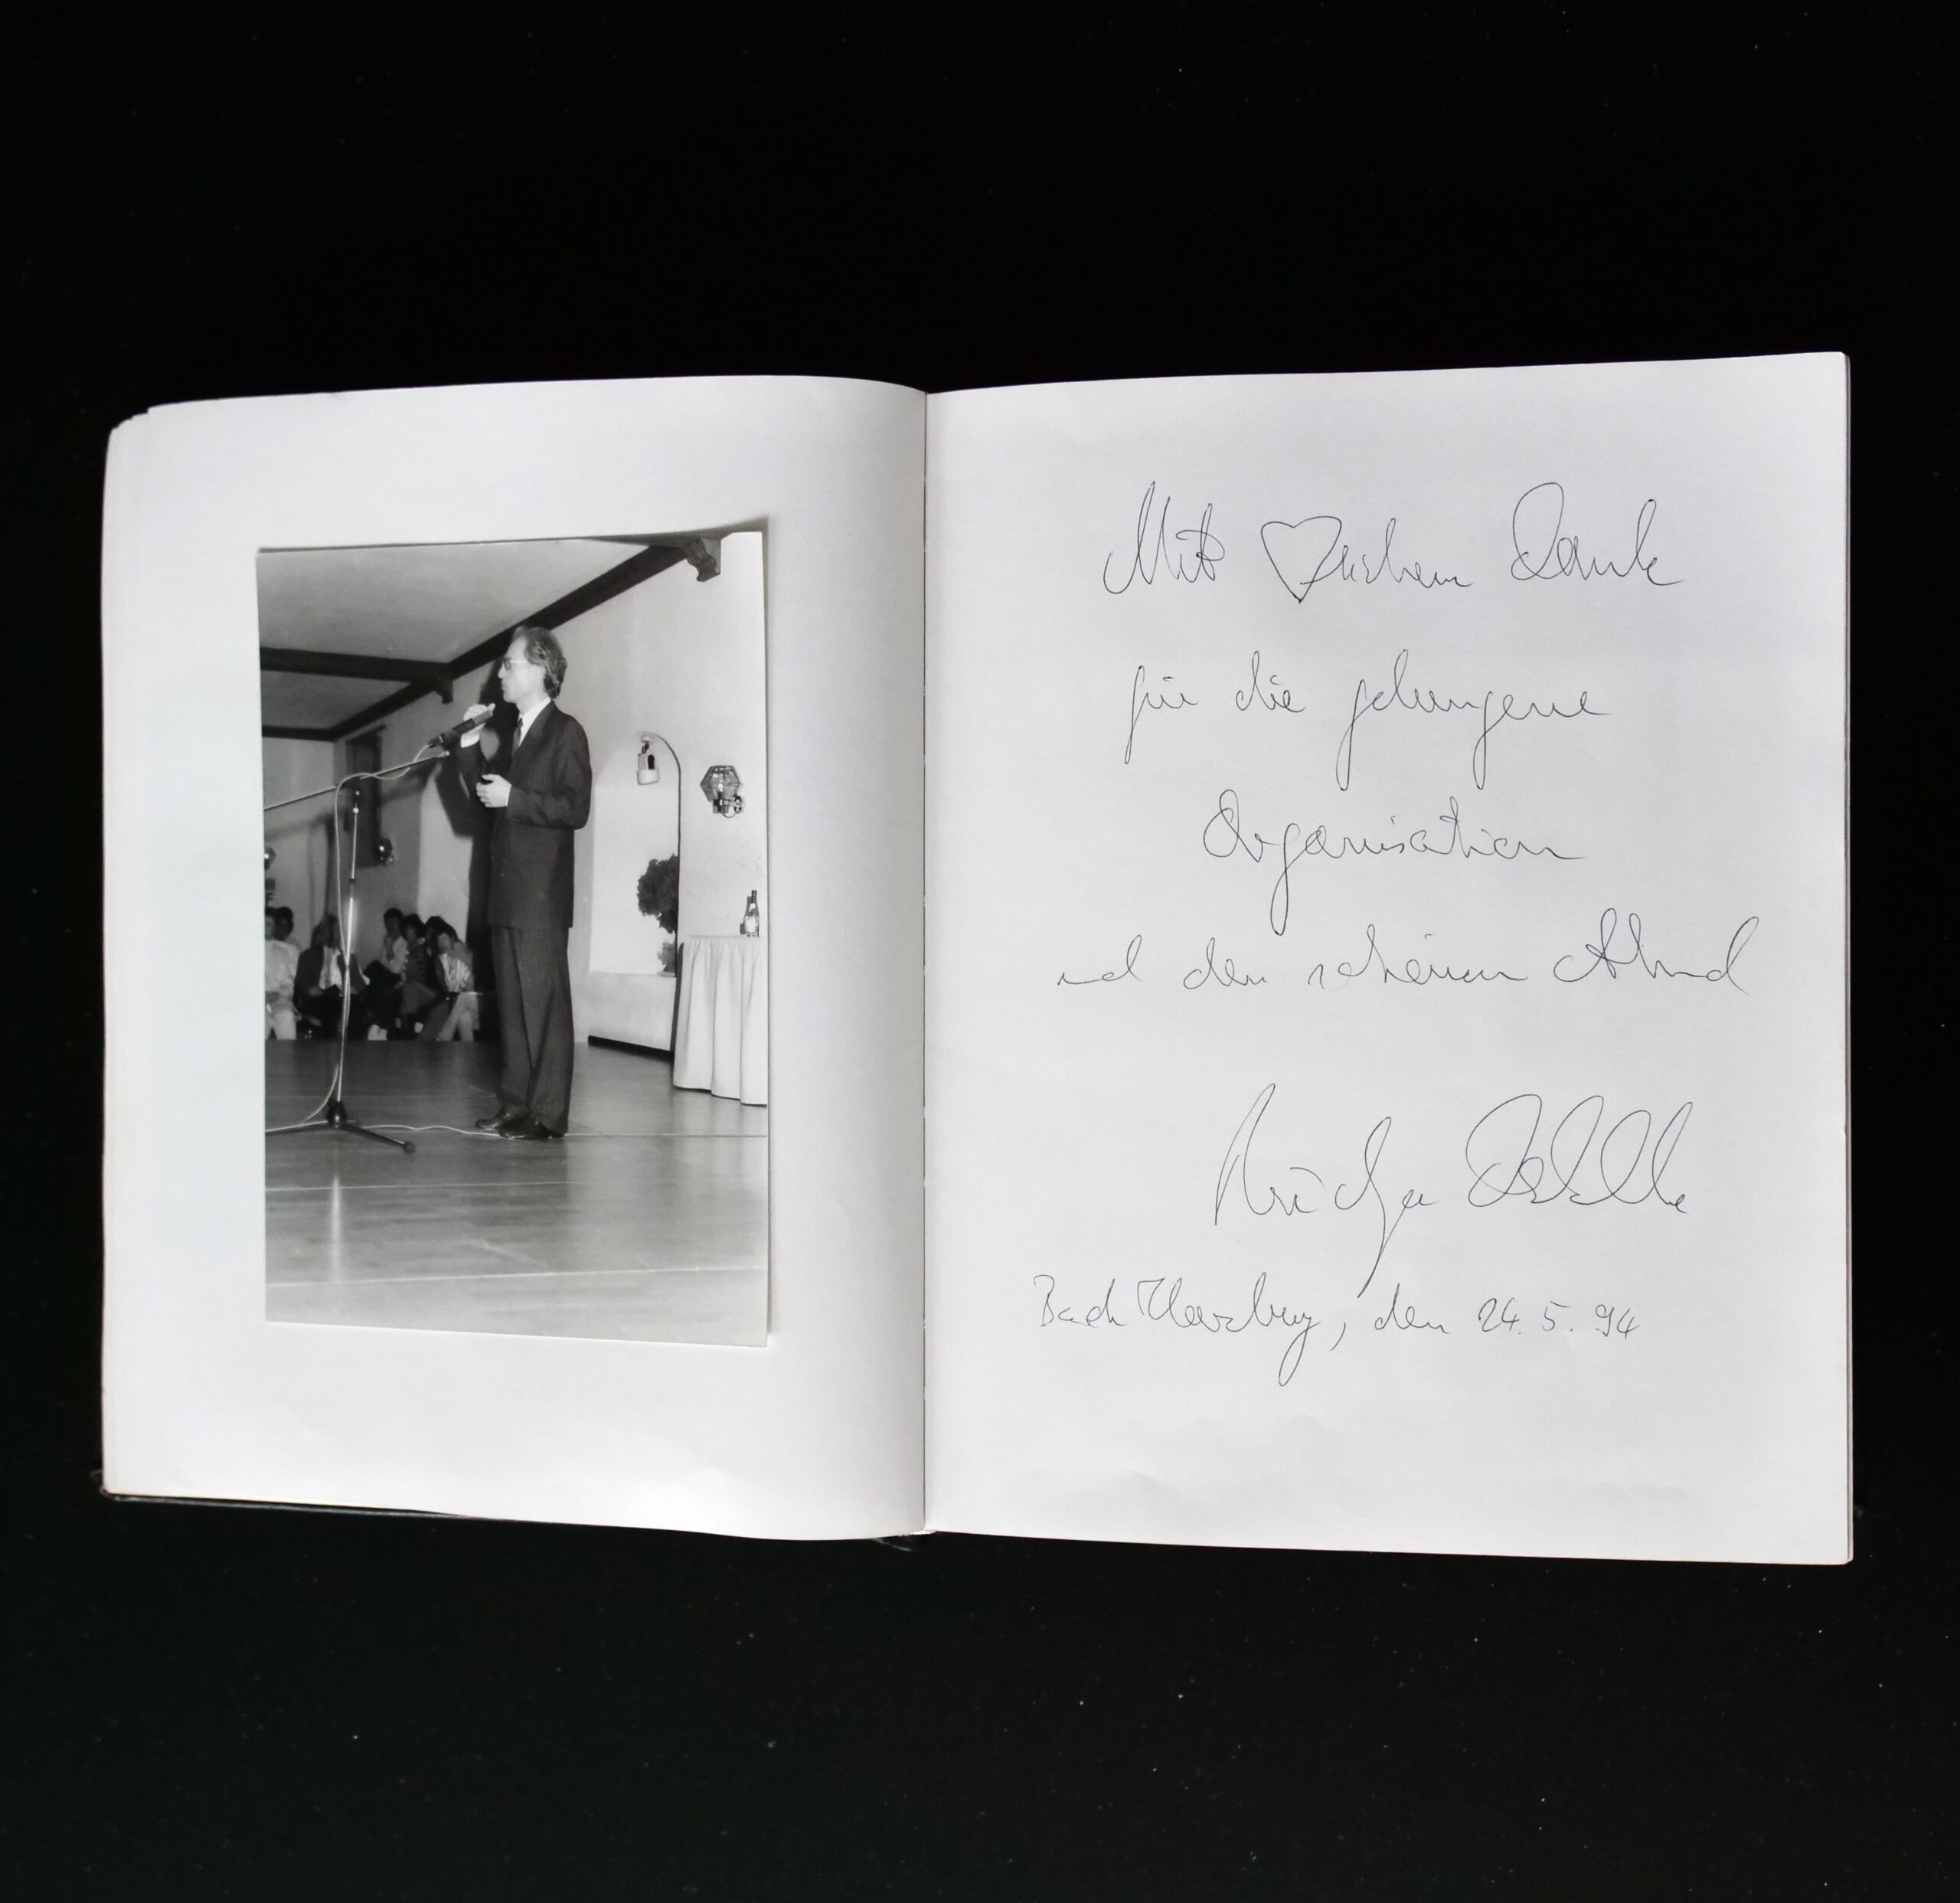 Mit ♡lichem Dank
für die gelungene
Organisation
und den schönen Abend
Rüdiger Dahlke
Bad Harzburg, den 24.5.94